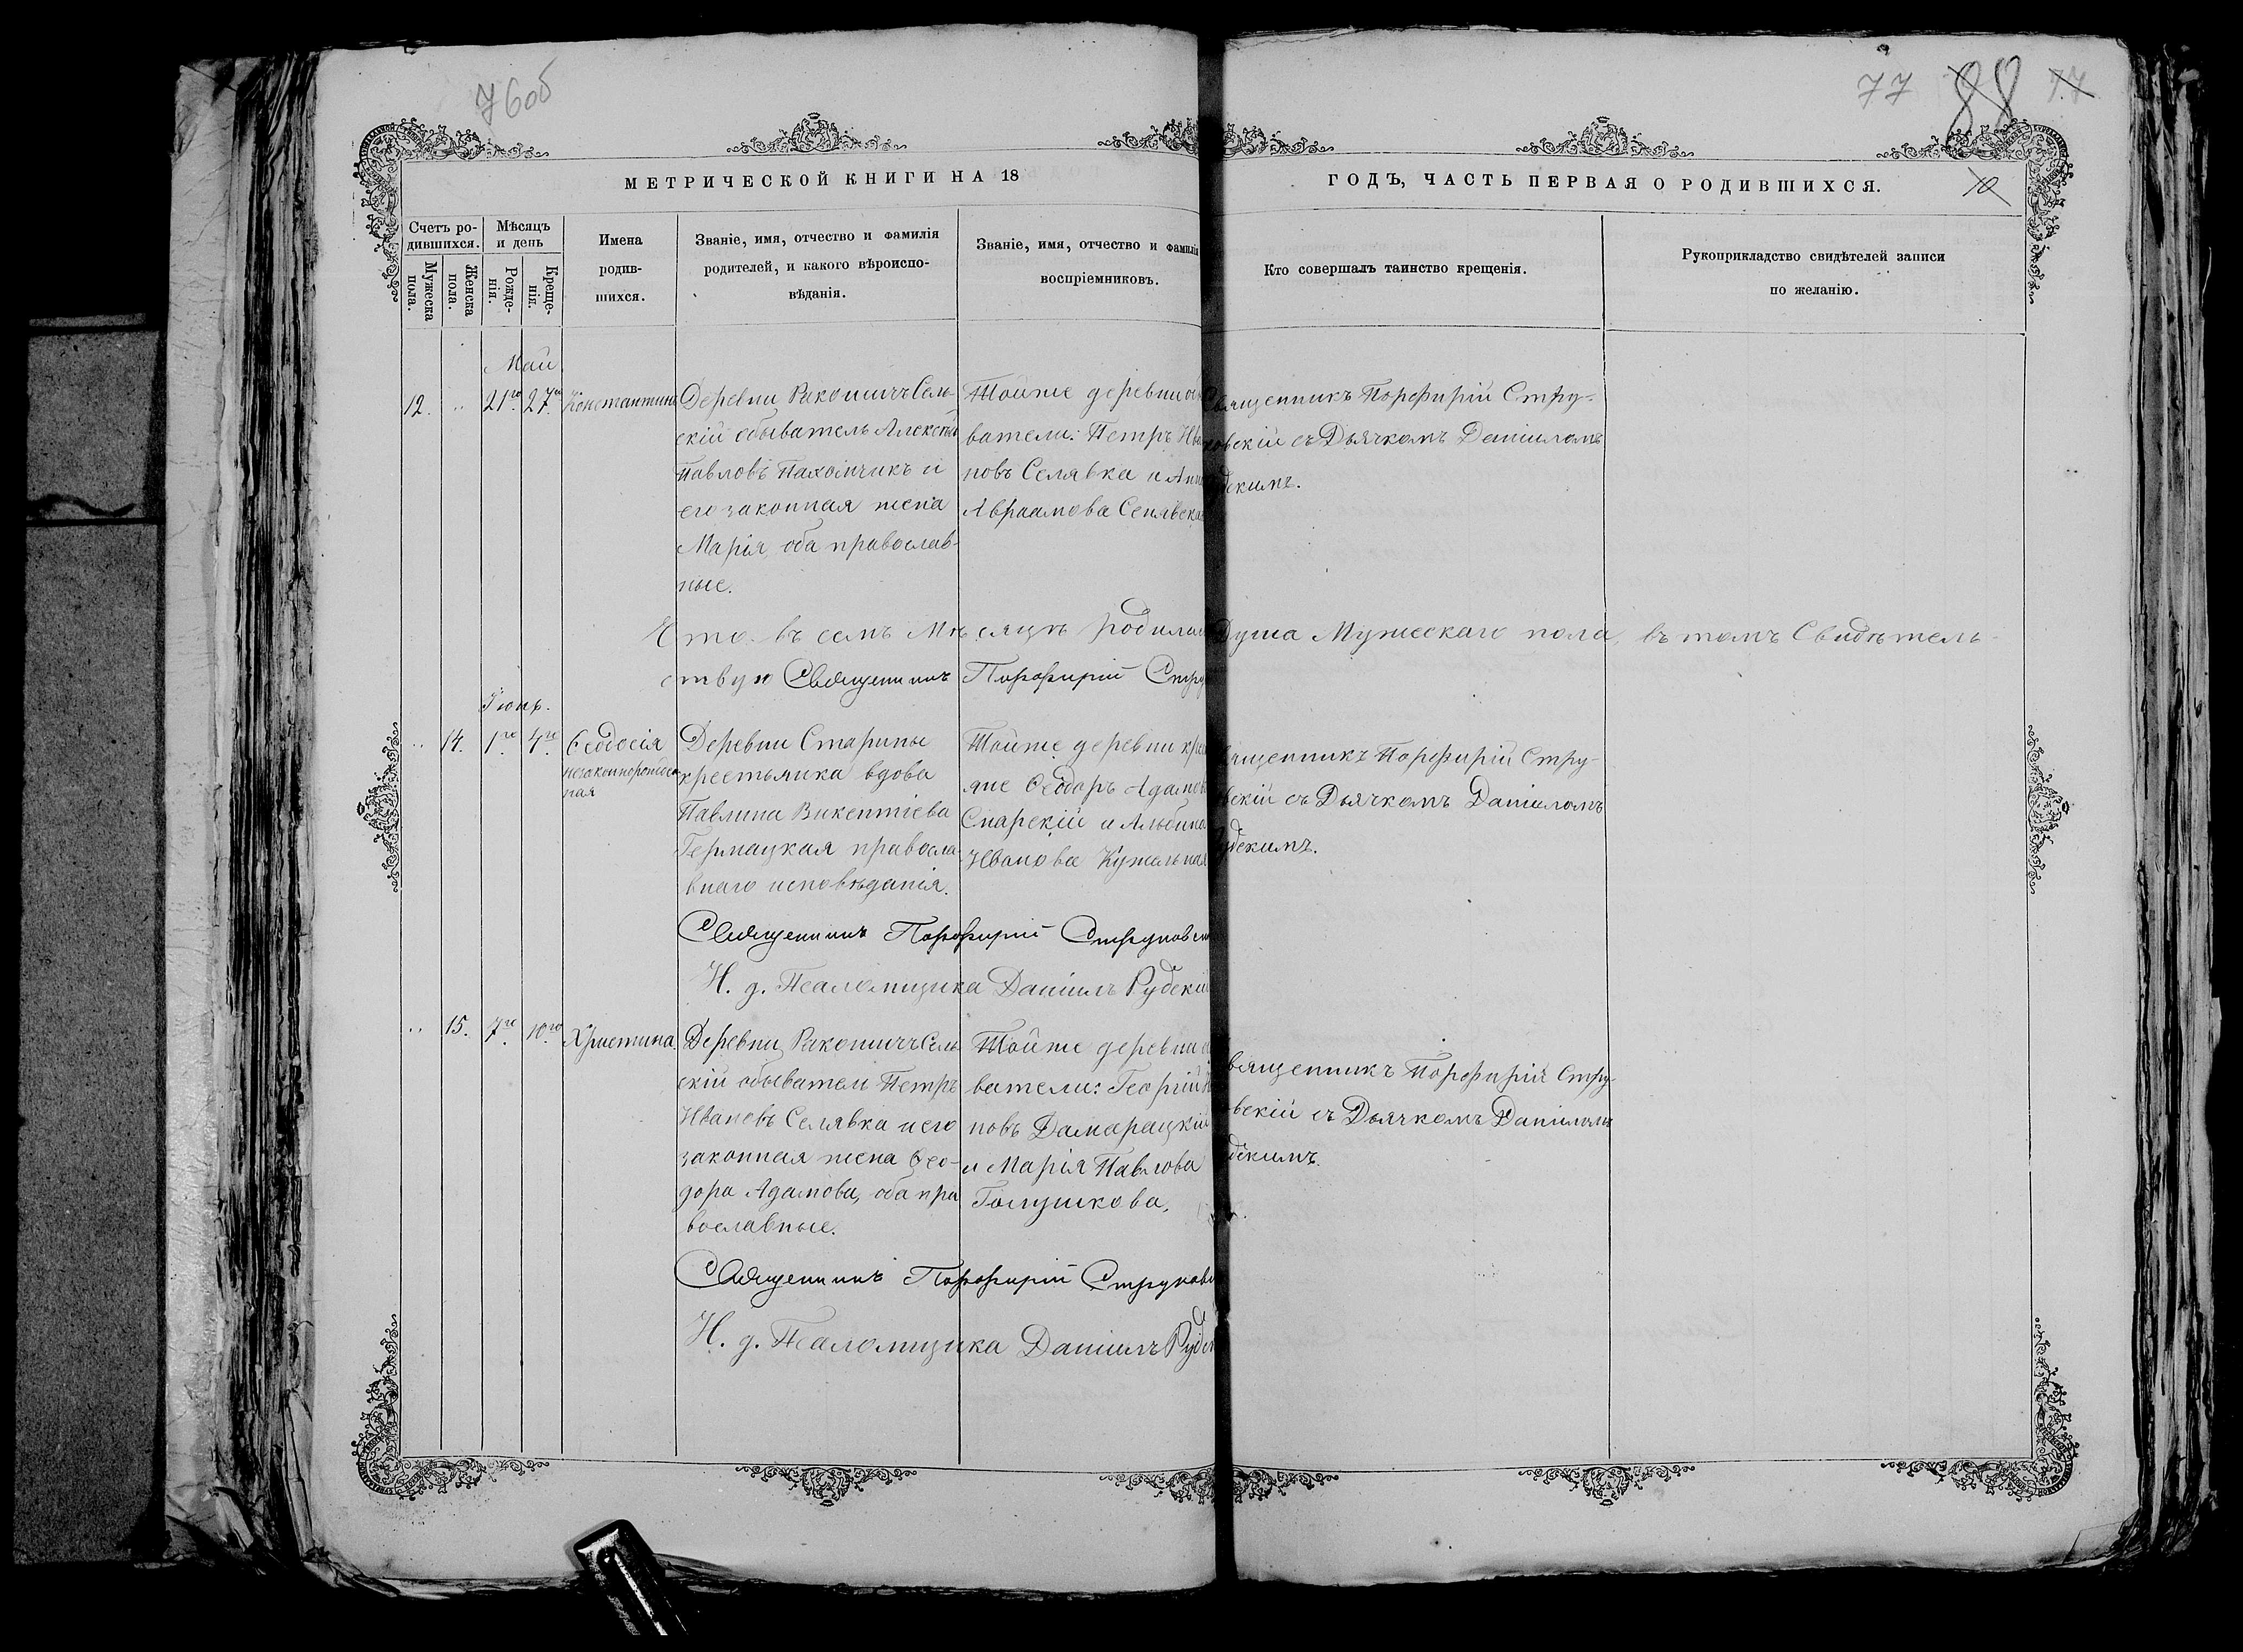 76об
77 88 77
МЕТРИЧЕСКОЙ КНИГИ НА 18
ГОДЪ, ЧАСТЬ ПЕРВАЯ О РОДИВШИХСЯ.
10
Счетъ ро-
дившихся.
Мужеска
пола.
Женска
пола.
Мѣсяцъ
и день
Рожде-
нія.
Креще-
нія.
Имена
родив-
шихся.
Званіе, имя, отчество и фамилія
родителей, и какого вѣроиспо-
вѣданія.
Званіе, имя, отчество и фамилія
воспріемниковъ.
Кто совершалъ таинство крещенія.
Рукоприкладство свидѣтелей записи
по желанію.
Май
12. " 21го 27го Константинъ
Деревни Ракошичъ Сель-
скій обыватель Алексѣй
Павловъ Пахольчикъ и
его законная жена
Марія, оба православ-
ные.
Тойже деревни
ватели: Петръ Ива
новъ Селявка и Анна
Авраамова
Священникъ Порфирій Стру-
ковскій съ Дьячкомъ Даніиломъ
дскимъ.
Что въ семъ Мѣсяцѣ родилась Душа Мужескаго пола, въ томъ Свидѣтель-
ствую Священникъ Порфирій Стру
Іюнь.
" 14. 1го 4го Ѳеодосія
незаконнорожден-
ная
Деревни Старины
крестьянка вдова
Павлина Викентіева
Гермацкая правосла-
внаго исповѣданія.
Тойже деревни крес
яне Ѳеодоръ Адамовъ
Снарскій и Альбина
Иванова Кужельная
вященникъ Порфирій Стру-
вскій съ Дьячкомъ Даніиломъ
удскимъ.
Священникъ Порфирій Струковск
И. д. Псаломщика Даніилъ Рудскій
" 15. 7го 10го Христина.
Деревни Ракошичъ Сель
скій обыватели Петръ
Ивановъ Селявка и его
законная жена Ѳео-
дора Адамова, оба пра
вославные.
Тойже деревни о
ватели: Георгій
новъ Дамарацкій
и Марія Павлова
Голушкова.
вященникъ Порфирій Стру
вскій съ Дьячкомъ Даніиломъ
дскимъ.
Священникъ Порфирій Струковс
И. д. Псаломщика Даніилъ Рудск